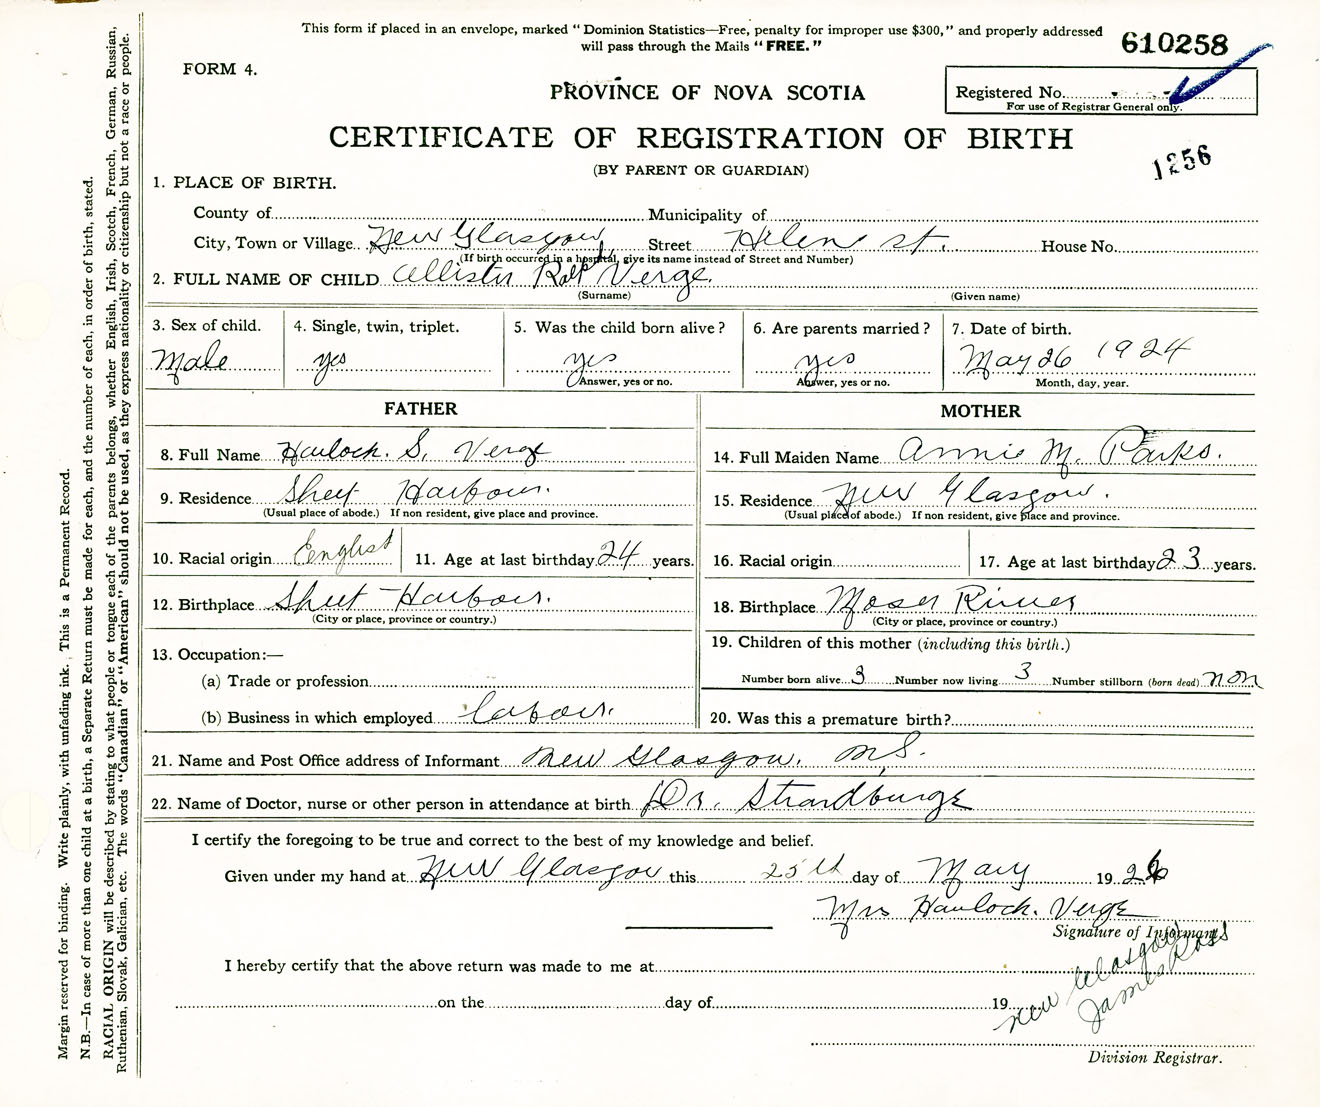 This form if placed in an envelope, marked "Dominion Statistics—Free, penalty for improper use $300," and properly addressed
will pass through the Mails "FREE."
610258
FORM 4.
PROVINCE OF NOVA SCOTIA
Registered No.
For use of Registrar General only.
CERTIFICATE OF REGISTRATION OF BIRTH
(BY PARENT OR GUARDIAN)
1256
1. PLACE OF BIRTH.
County of Municipality of
City, Town or Village New Glasgow Street Helen St. House No.
(If birth occurred in a hospital, give its name instead of Street and Number)
2. FULL NAME OF CHILD Allister Ralph Verge
(Surname) (Given name)
3. Sex of child. 4. Single, twin, triplet. 5. Was the child born alive? 6. Are parents married? 7. Date of birth.
Male yes yes yes May 26 1924
Answer, yes or no. Answer, yes or no. Month, day, year.
FATHER MOTHER
8. Full Name Havlock. S. Verge 14. Full Maiden Name Annie M. Parks.
9. Residence Sheet Harbour. 15. Residence New Glasgow.
(Usual place of abode.) If non resident, give place and province. (Usual place of abode.) If non resident, give place and province.
10. Racial origin English 11. Age at last birthday 24 years. 16. Racial origin 17. Age at last birthday 23 years.
12. Birthplace Sheet Harbour. 18. Birthplace Moser River
(City or place, province or country.) (City or place, province or country.)
13. Occupation:— 19. Children of this mother (including this birth.)
(a) Trade or profession Number born alive 3 Number now living 3 Number stillborn (born dead) non
(b) Business in which employed labour. 20. Was this a premature birth?
21. Name and Post Office address of Informant New Glasgow. N.S.
22. Name of Doctor, nurse or other person in attendance at birth Dr. Strandburge
I certify the foregoing to be true and correct to the best of my knowledge and belief.
Given under my hand at New Glasgow this 25th day of May 1926
Mrs Havlock. Verge
Signature of Informant
I hereby certify that the above return was made to me at
on the day of 19
New Glasgow
James Ross
Division Registrar.
Margin reserved for binding. Write plainly, with unfading ink. This is a Permanent Record.
N.B.—In case of more than one child at a birth, a Separate Return must be made for each, and the number of each, in order of birth, stated.
RACIAL ORIGIN will be described by stating to what people or tongue each of the parents belongs, whether English, Irish, Scotch, French, German, Russian,
Ruthenian, Slovak, Galician, etc. The words "Canadian" or "American" should not be used, as they express nationality or citizenship but not a race or people.